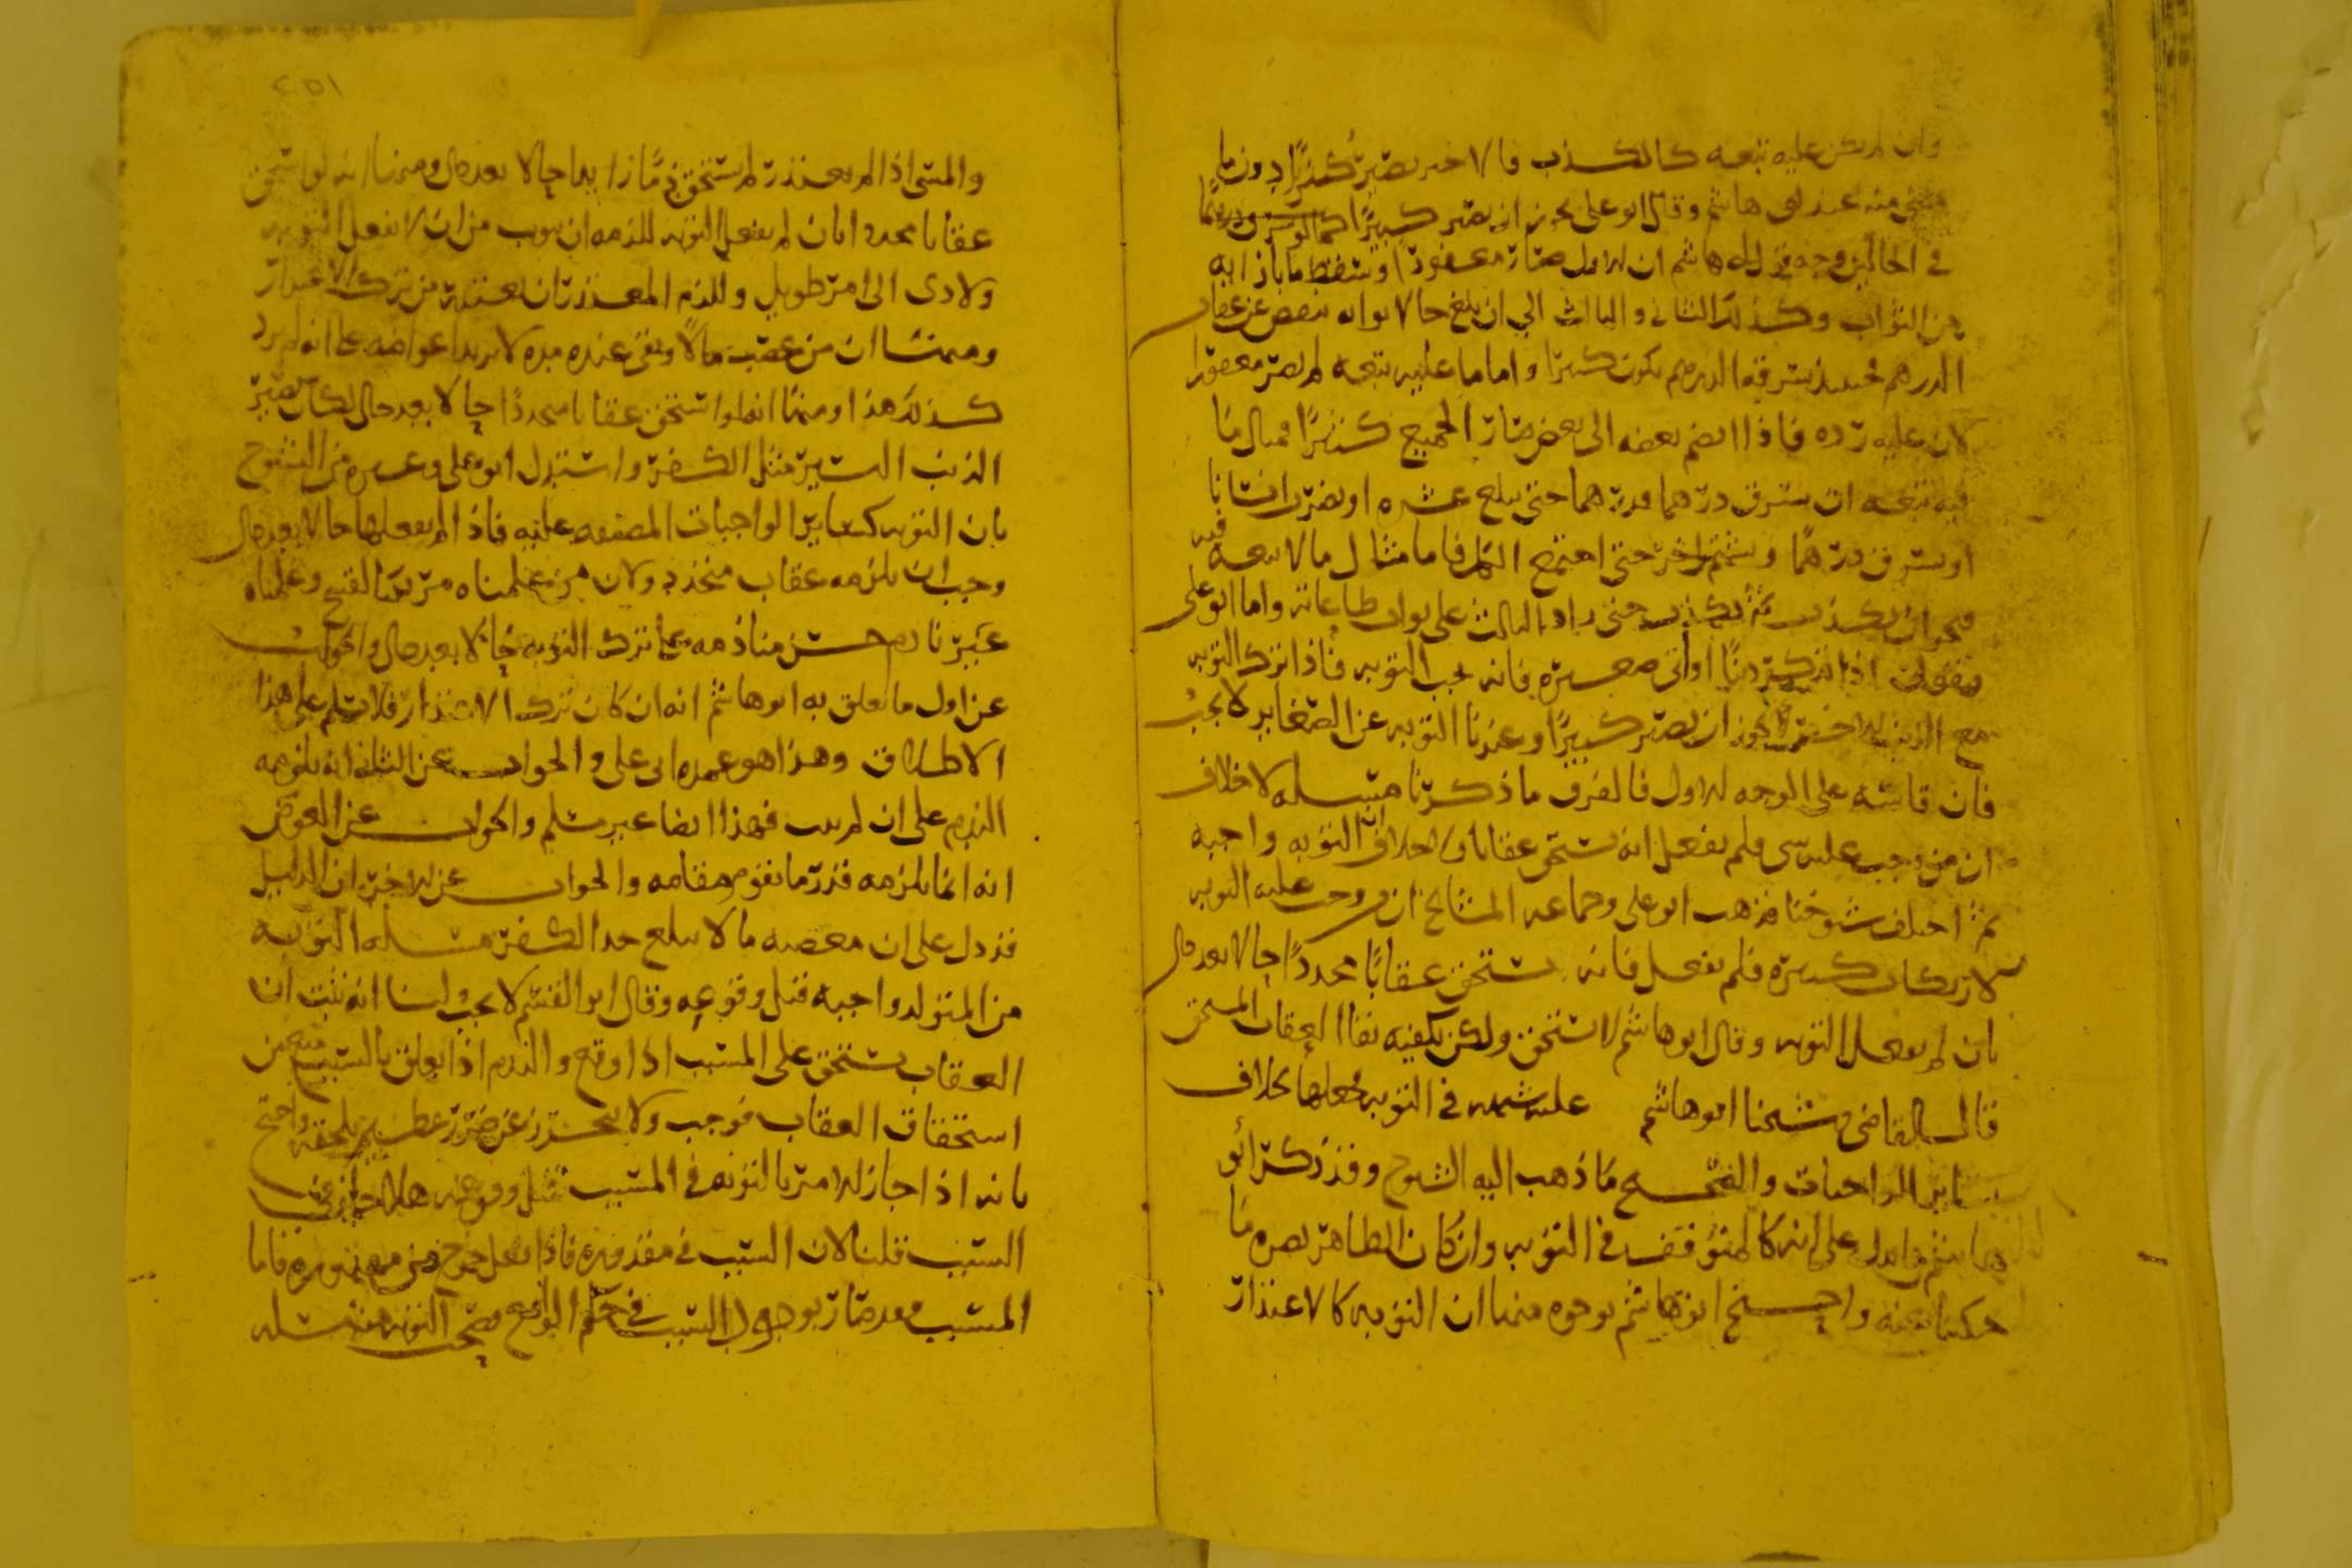 وان لم يكن عليه تبعه كالكذب فالاخير يصير كبيرًا دون ما
مضى منه عند ابى هاشم وقال ابو على يجوز ان يصير كبيرًا كما لو سرق درهمًا
فى الحالين وجه قول ابى هاشم ان الاول صار مغفورًا وسقط ما بازايه
من الثواب وكذلك الثانى والثالث الى ان يبلغ حالا ثوابه ينقص عن عقاب
الدرهم فحينيذ سرقه الدرهم يكون كبيرًا واما ما عليه تبعه لم يصر مغفورًا
لان عليه رده فاذا انضم بعضه الى بعض صار الجميع كبيرًا فمثال ما
فيه تبعه ان يسرق درهما درهما حتى يبلغ عشره او يضرب انسانا
او يسرق درهمًا ويشتم اخر حتى اجتمع الكل فاما مثال ما لا تبعه فيه
فنحو ان يكذب ثم يكذب حتى زاد الثالث على ثواب طاعاته واما ابو على
فيقول اذا تذكر ذنبًا او اتى صغيره فانه يجب التوبه فاذا ترك التوبه
مع الذنب الاخر يجوز ان يصير كبيرًا وعندنا التوبه عن الصغاير لا تجب
فان قاسه على الوجه الاول فالفرق ما ذكرنا مسله لا خلاف
ان من وجب عليه شى فلم يفعل انه يستحق عقابا ولا خلاف ان التوبه واجبه
ثم اختلف شيوخنا فذهب ابو على وجماعه المشايخ ان من وجب عليه التوبه
لارتكاب كبيره فلم يفعل فانه يستحق عقابًا مجددًا حالا بعد حال
بان لم يفعل التوبه وقال ابو هاشم لا يستحق ولكن يكفيه بقا العقاب المستحق
قال القاضى وشيخنا ابو هاشم في التوبه فجعلها بخلاف
ساير الواجبات والصحيح ما ذهب اليه الشيوخ وقد ذكر ابو
هاشم ما يدل على انه كالمتوقف فى التوبه وان كان الظاهر نصره ما
حكينا عنه واحتج ابو هاشم بوجوه منها ان التوبه كالاعتذار
٢٥١
والمسى اذا لم يعتذر لم يستحق ذمًا زايدا حالا بعد حال ومنها انه لو استحق
عقابا مجددا بان لم يفعل التوبه للزمه ان يتوب من ان لا يفعل التوبه
ولادى الى امر طويل وللزم المعتذر ان يعتذر من ترك الاعتذار
ومنها ان من غصب مالًا وبقى عنده مده لا يزيد اعواضه على انه لم يرد
كذلك هذا ومنها انه لو استحق عقابا مجددًا حالا بعد حال لكان يصير
الذنب اليسير مثل الكفر واستدل ابو على وغيره من الشيوخ
بان التوبه كساير الواجبات المضيقه عليه فاذا لم يفعلها حالا بعد حال
وجب ان يلزمه عقاب متجدد ولان من علمناه مرتكبا لقبيح وعلمناه
غير نادم حسن منا ذمه على ترك التوبه حالا بعد حال والجواب
عن اول ما تعلق به ابو هاشم انه ان كان ترك الاعتذار فلا نسلم على هذا
الاطلاق وهذا هو عمده ابى على والجواب عن الثانى انه يلزمه
الندم على ان لم يتب فهذا ايضا غير مسلم والجواب عن العوض
انه انما يلزمه قدر ما يقوم مقامه والجواب عن الاخير ان الدليل
قد دل على ان معصيه ما لا يبلغ حد الكفر مسله التوبه
من المتولد واجبه قبل وقوعه وقال ابو القسم لا يجب لنا انه ثبت ان
العقاب يستحق على المسبب اذا وقع والندم اذا تعلق بالسبب منع من
استحقاق العقاب فوجب ولا يتحرز عن ضرر عظيم يلحقه واحتج
بانه اذا جاز الامر بالتوبه فى المسبب قبل وقوعه هلا جاز فى
السبب قلنا لان السبب فى مقدوره فاذا فعل خرج من مقدوره فاما
المسبب فقد صار بوجود السبب فى حكم الواقع فصحت التوبه منه مسله